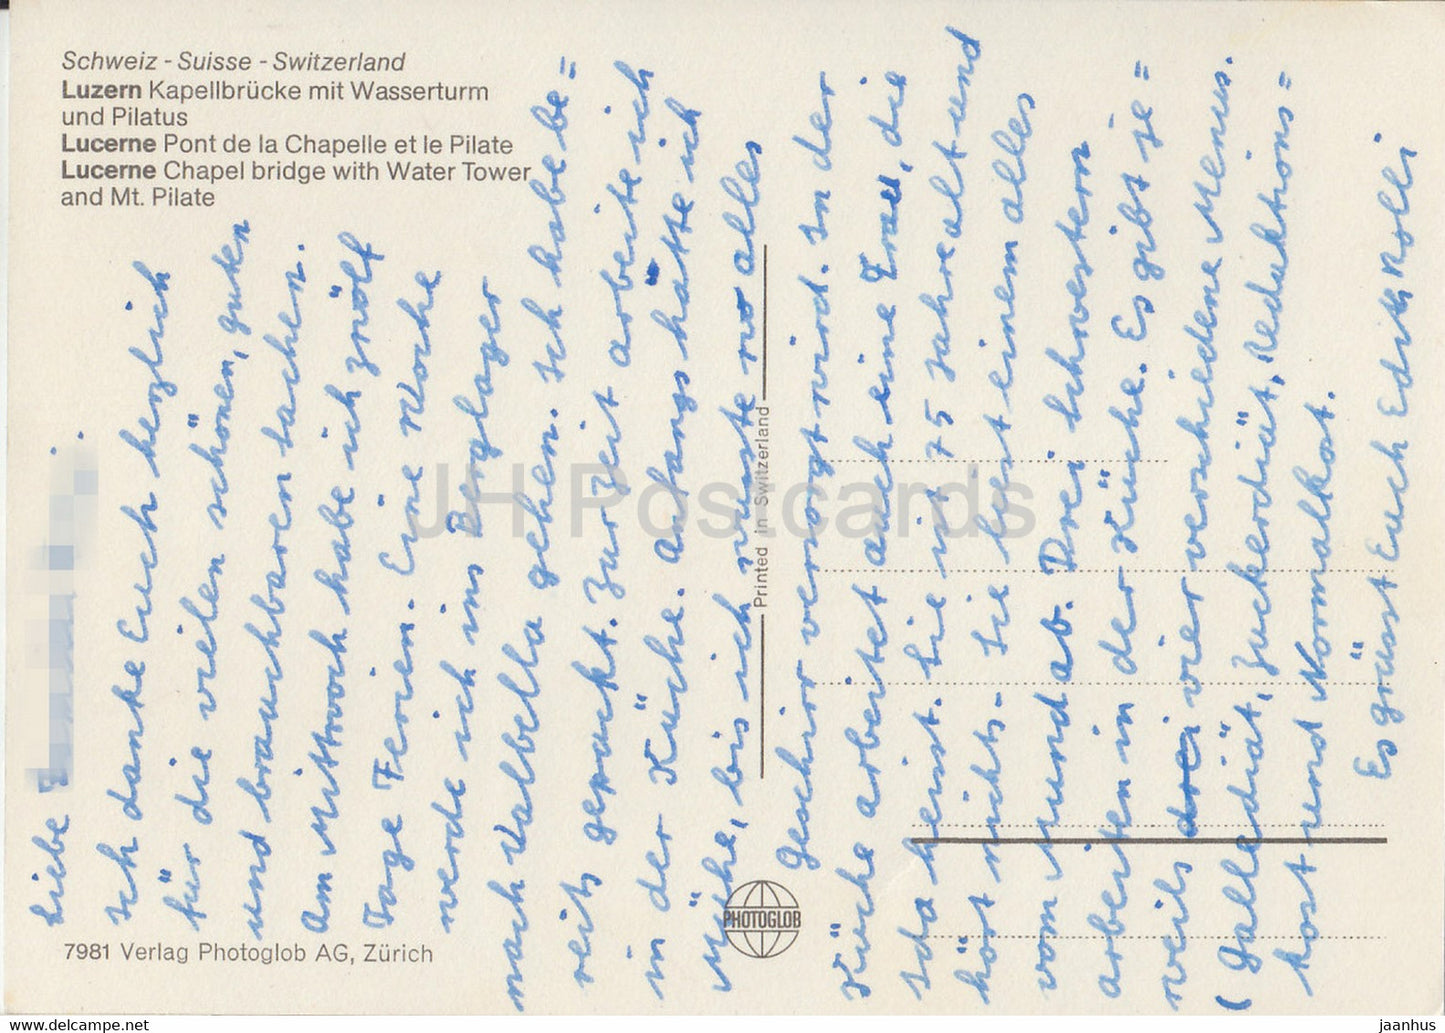 Schweiz - Suisse - Switzerland
Luzern Kapellbrücke mit Wasserturm
und Pilatus
Lucerne Pont de la Chapelle et le Pilate
Lucerne Chapel bridge with Water Tower
and Mt. Pilate
Liebe
Ich danke Euch herzlich
für die vielen schönen, guten
und brauchbaren Sachen.
Am Mittwoch habe ich zwölf
Tage Ferien. Eine Woche
werde ich ins Berglager
nach Valbella gehen. Ich habe be=
reits gepackt. Zur Zeit arbeite ich
in der Küche. Anfangs hätte ich
Mühe, bis ich wusste wo alles
Geschirr versorgt wird. In der
Küche arbeitet auch eine Frau, die
Ida heisst. Sie ist 75 Jahre alt und
hört nichts. Sie liest einem alles
vom Mund ab. Drei Schwestern
arbeiten in der Küche. Es gibt je=
weils drei vier verschiedene Menus.
(Gallediät, Zuckerdiät, Reduktions=
kost und Normalkost.
Es grüsst Euch Edith Kolli
7981 Verlag Photoglob AG, Zürich
Printed in Switzerland
PHOTOGLOB
JH Postcards
www.delcampe.net
jaanhus